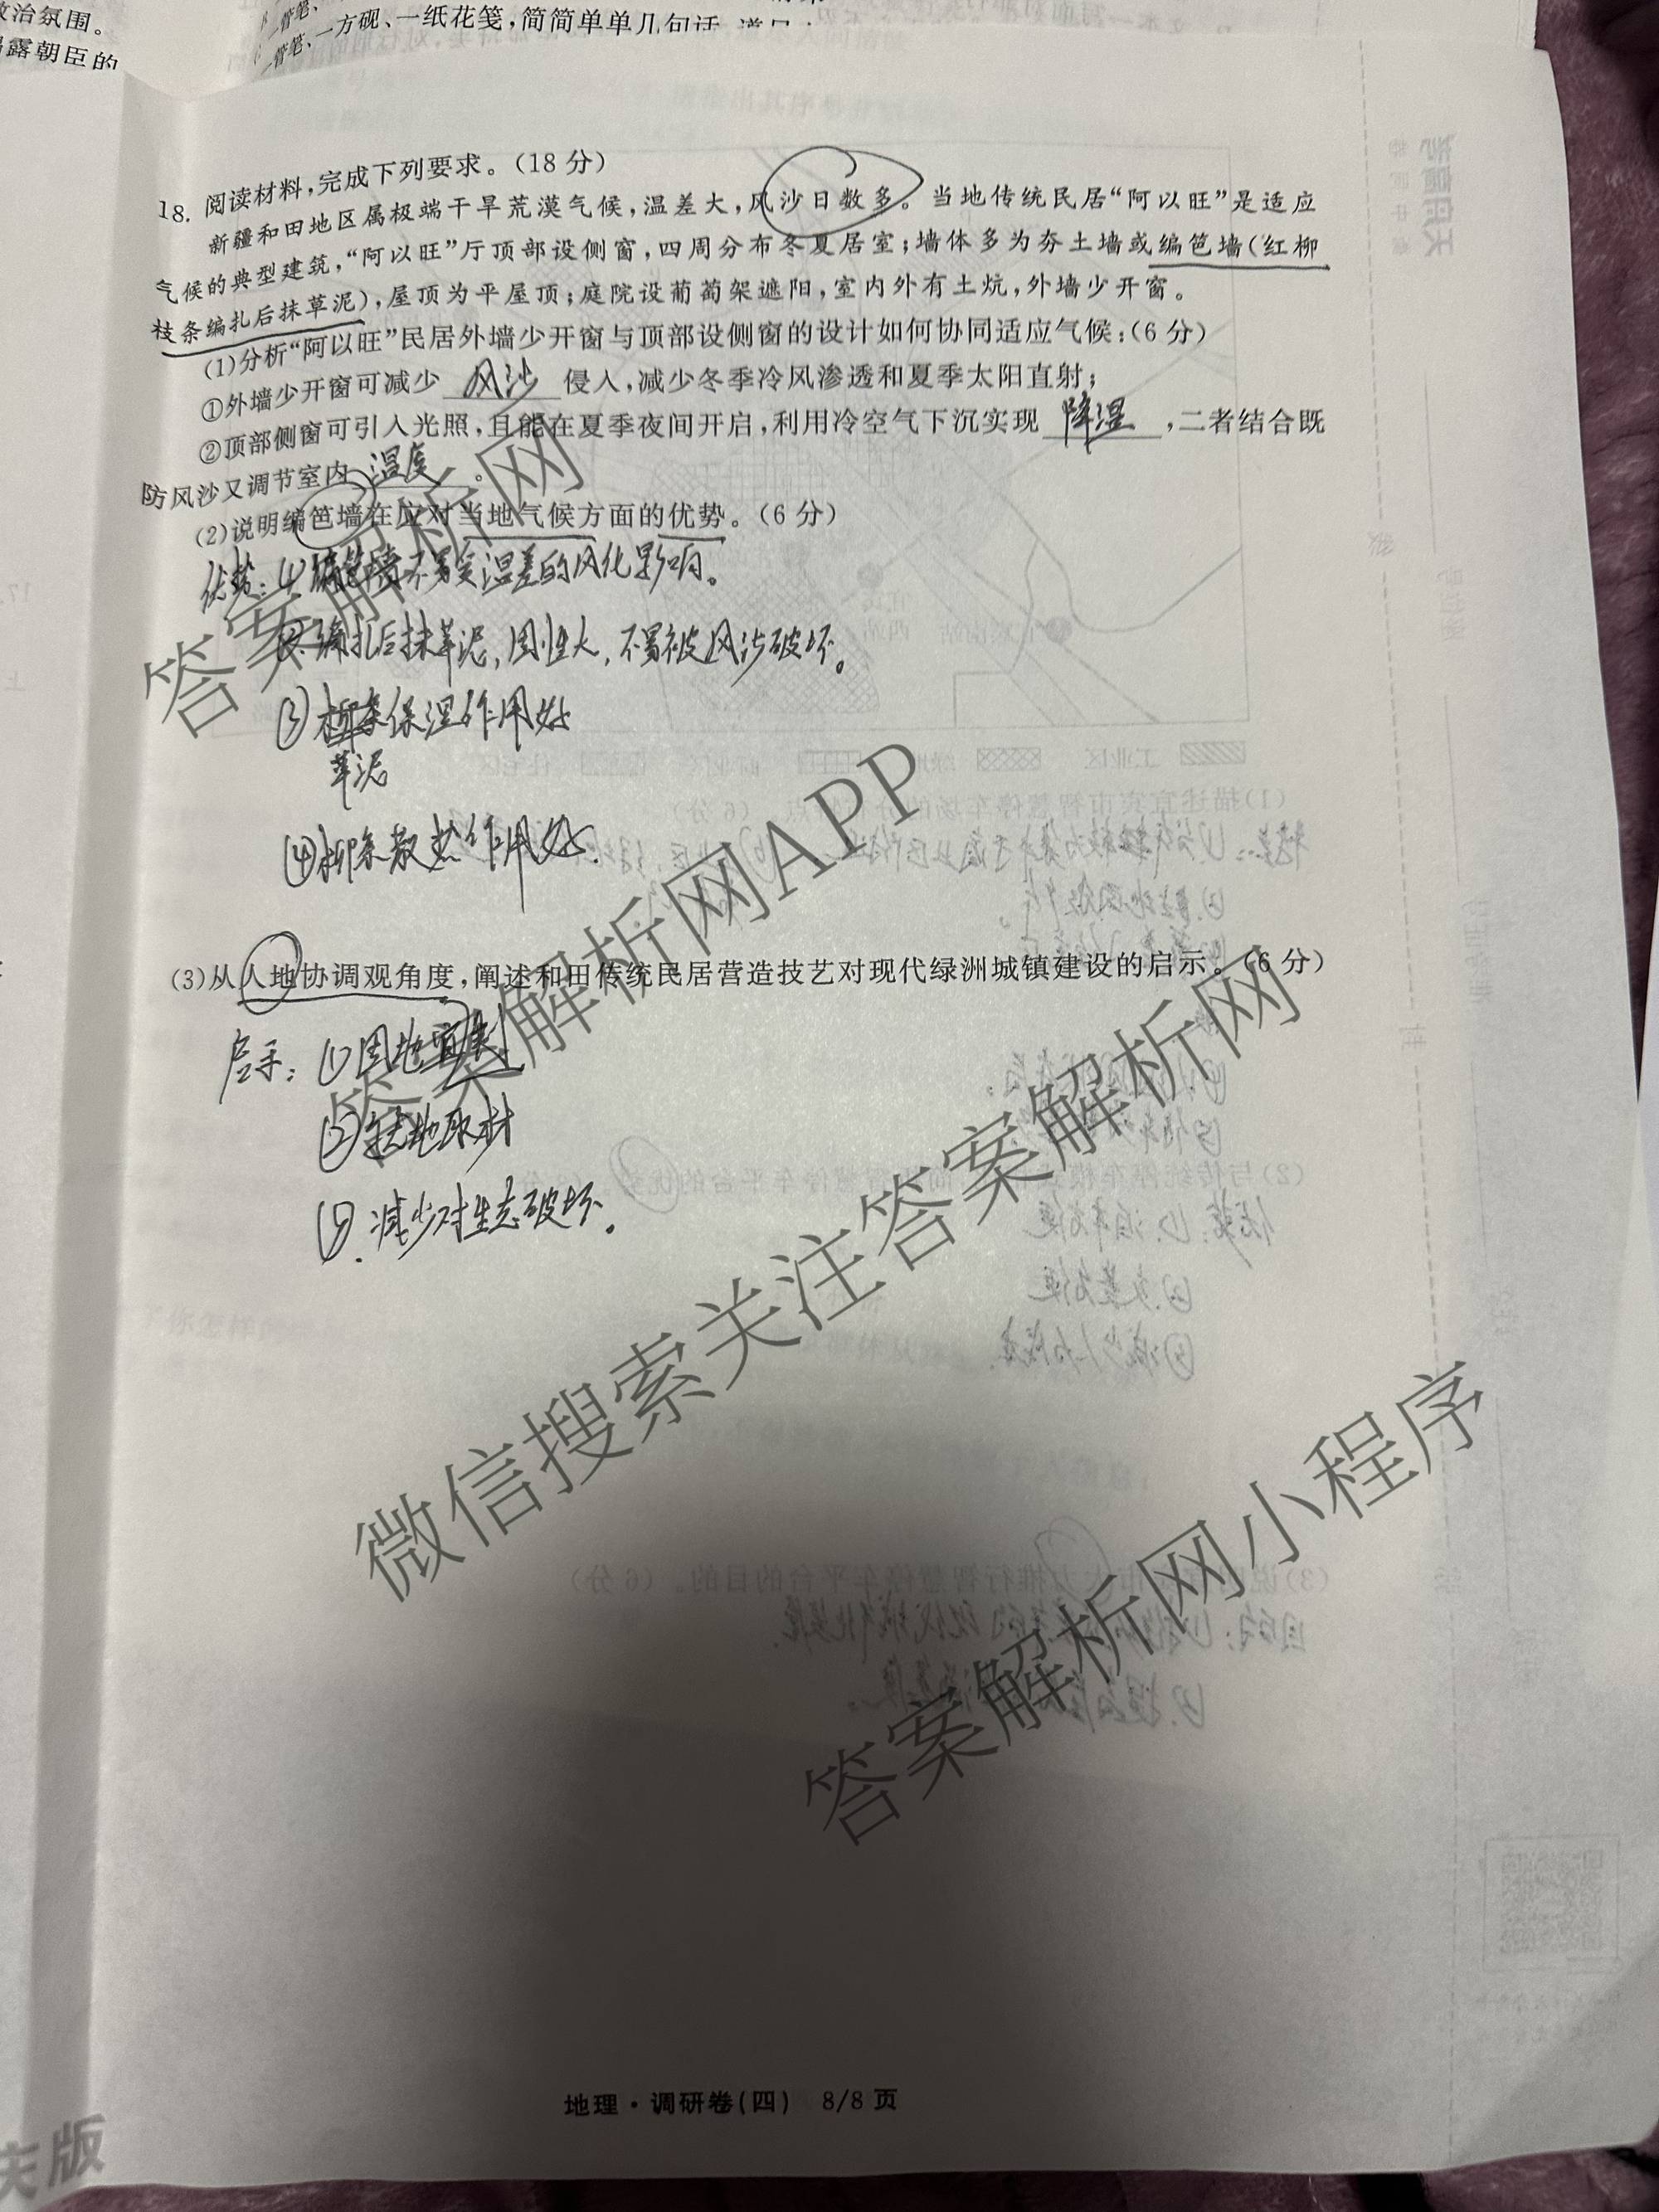 政治氛围。
露朝臣的
一管笔、一方砚、一纸花笺,简简单单几句话
18. 阅读材料,完成下列要求。(18 分)
新疆和田地区属极端干旱荒漠气候,温差大,风沙日数多。当地传统民居“阿以旺”是适应
气候的典型建筑,“阿以旺”厅顶部设侧窗,四周分布冬夏居室;墙体多为夯土墙或编笆墙(红柳
枝条编扎后抹草泥),屋顶为平屋顶;庭院设葡萄架遮阳,室内外有土炕,外墙少开窗。
(1)分析“阿以旺”民居外墙少开窗与顶部设侧窗的设计如何协同适应气候:(6 分)
①外墙少开窗可减少 风沙 侵入,减少冬季冷风渗透和夏季太阳直射;
②顶部侧窗可引入光照,且能在夏季夜间开启,利用冷空气下沉实现 降温 ,二者结合既
防风沙又调节室内 温度 。
(2)说明编笆墙在应对当地气候方面的优势。(6 分)
优势:①编笆墙不易受温差的风化影响。
②编扎后抹草泥,固性大,不易被风沙破坏。
③柳条保湿作用好
草泥
④柳条散热作用好.
(3)从人地协调观角度,阐述和田传统民居营造技艺对现代绿洲城镇建设的启示。(6 分)
启示:①因地
②就地取材
减少对生态破坏。
答案解析网
答案解析网APP
微信搜索关注答案解析网
答案解析网小程序
地理·调研卷(四) 8/8 页
版